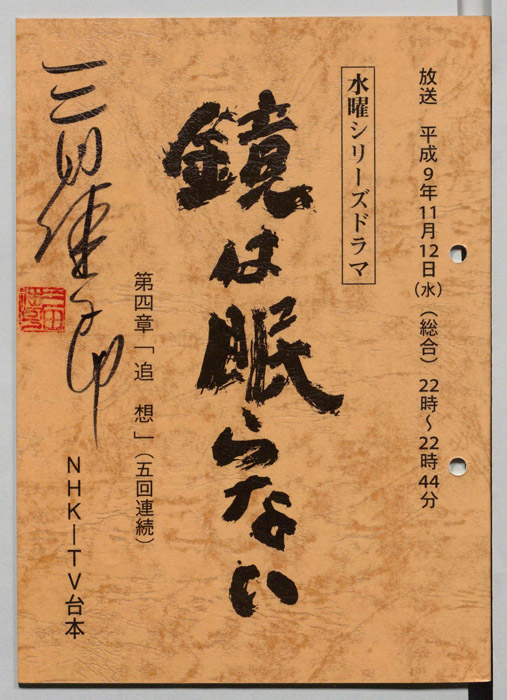 放送　平成9年11月12日(水)(総合)　22時〜22時44分
水曜シリーズドラマ
鏡は眠らない
第四章「追　想」(五回連続)
NHK―TV台本